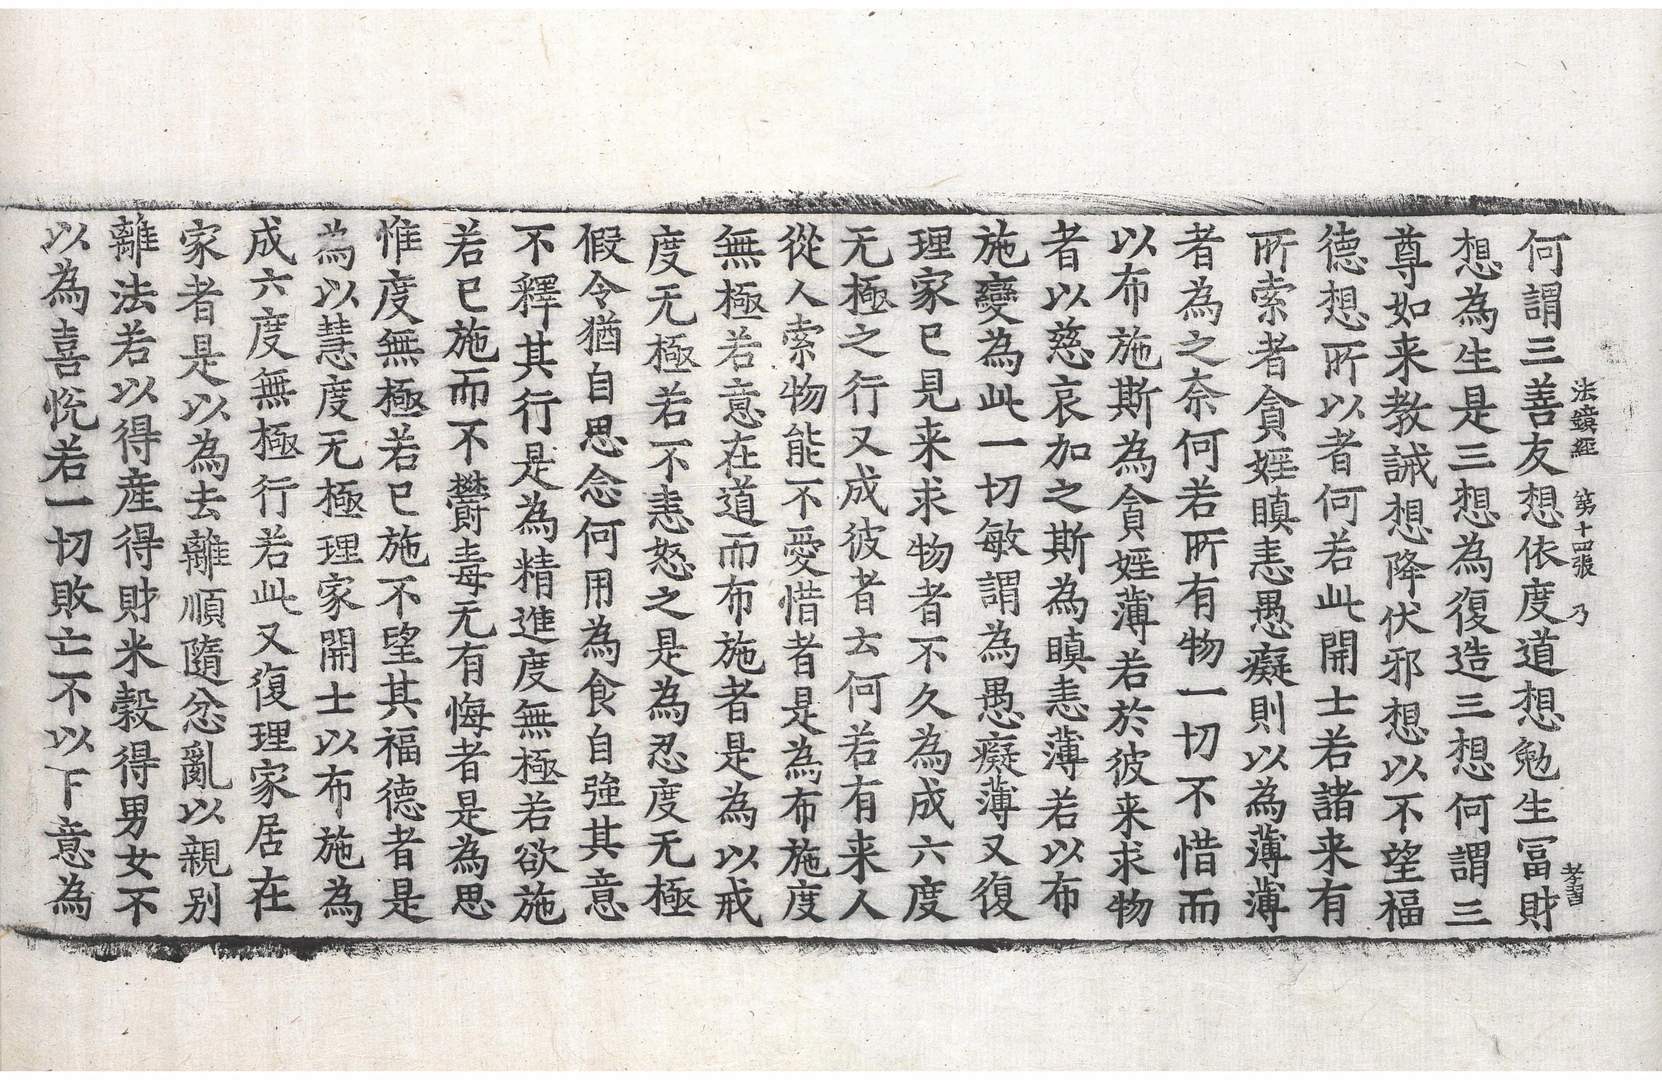 法鏡經 第十四張 乃
何謂三善友想依度道想勉生冨財
想為生是三想為復造三想何謂三
尊如来教誡想降伏邪想以不望福
德想所以者何若此開士若諸来有
所索者貪婬瞋恚愚癡則以為薄薄
者為之奈何若所有物一切不惜而
以布施斯為貪婬薄若於彼来求物
者以慈哀加之斯為瞋恚薄若以布
施變為此一切敏謂為愚癡薄又復
理家已見来求物者不久為成六度
无極之行又成彼者云何若有来人
從人索物能不愛惜者是為布施度
無極若意在道而布施者是為以戒
度无極若不恚怒之是為忍度无極
假令猶自思念何用為食自強其意
不釋其行是為精進度無極若欲施
若已施而不欝毒无有悔者是為思
惟度無極若已施不望其福德者是
為以慧度无極理家開士以布施為
成六度無極行若此又復理家居在
家者是以為去離順隨忿亂以親別
離法若以得産得財米穀得男女不
以為喜悅若一切敗亡不以下意為